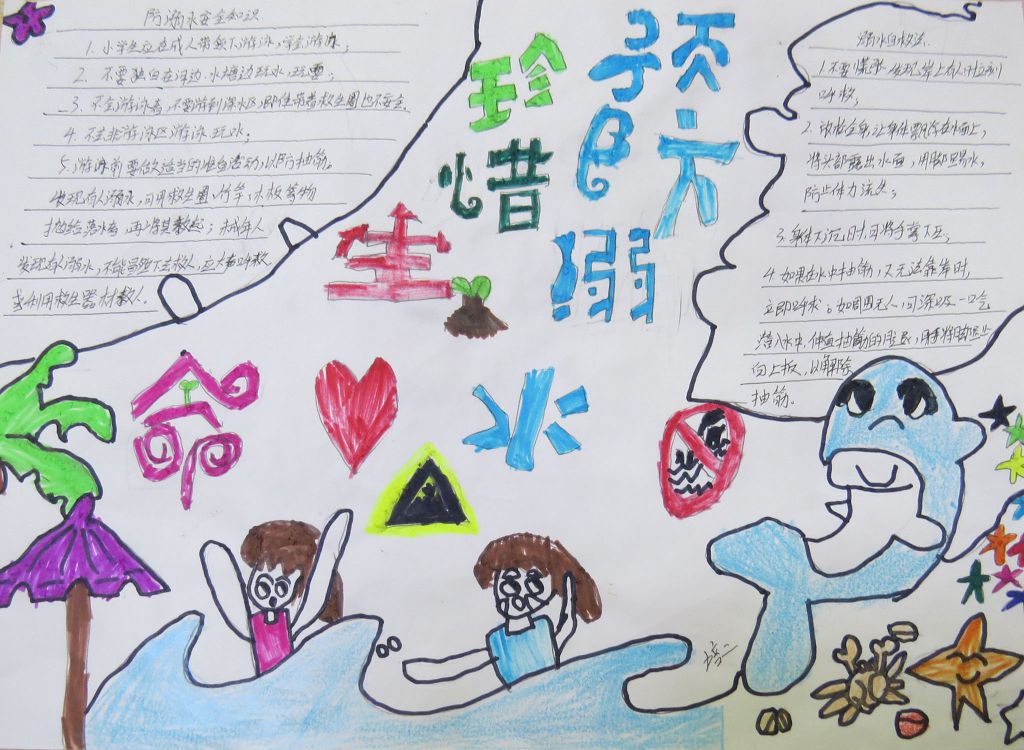 防溺水安全知识
1. 小学生应在成人带领下游泳,学会游泳;
2. 不要独自在河边、水塘边玩水,玩耍;
3. 不会游泳者,不要游到深水区,即使带着救生圈也不安全
4. 不去非游泳区游泳玩水;
5. 游泳前要做适当的准备活动,以防抽筋。
发现有人溺水,可用救生圈、竹竿、木板等物
抛给落水者,再将其救起;未成年人
发现有人溺水,不能冒然下去救人,应大声呼救
或利用救生器材救人。
珍惜
生命
预
防
溺
水
溺水自救法
1. 不要慌张,发现岸上有人时立刻
呼救;
2. 放松全身,让身体飘浮在水面上,
将头部露出水面,用脚踢水,
防止体力流失;
3. 身体下沉时,可将手掌下压;
4. 如果在水中抽筋,又无法靠岸时,
立即呼求。如周围无人,可深吸一口气
潜入水中,伸直抽筋的
向上扳,以解除
抽筋。